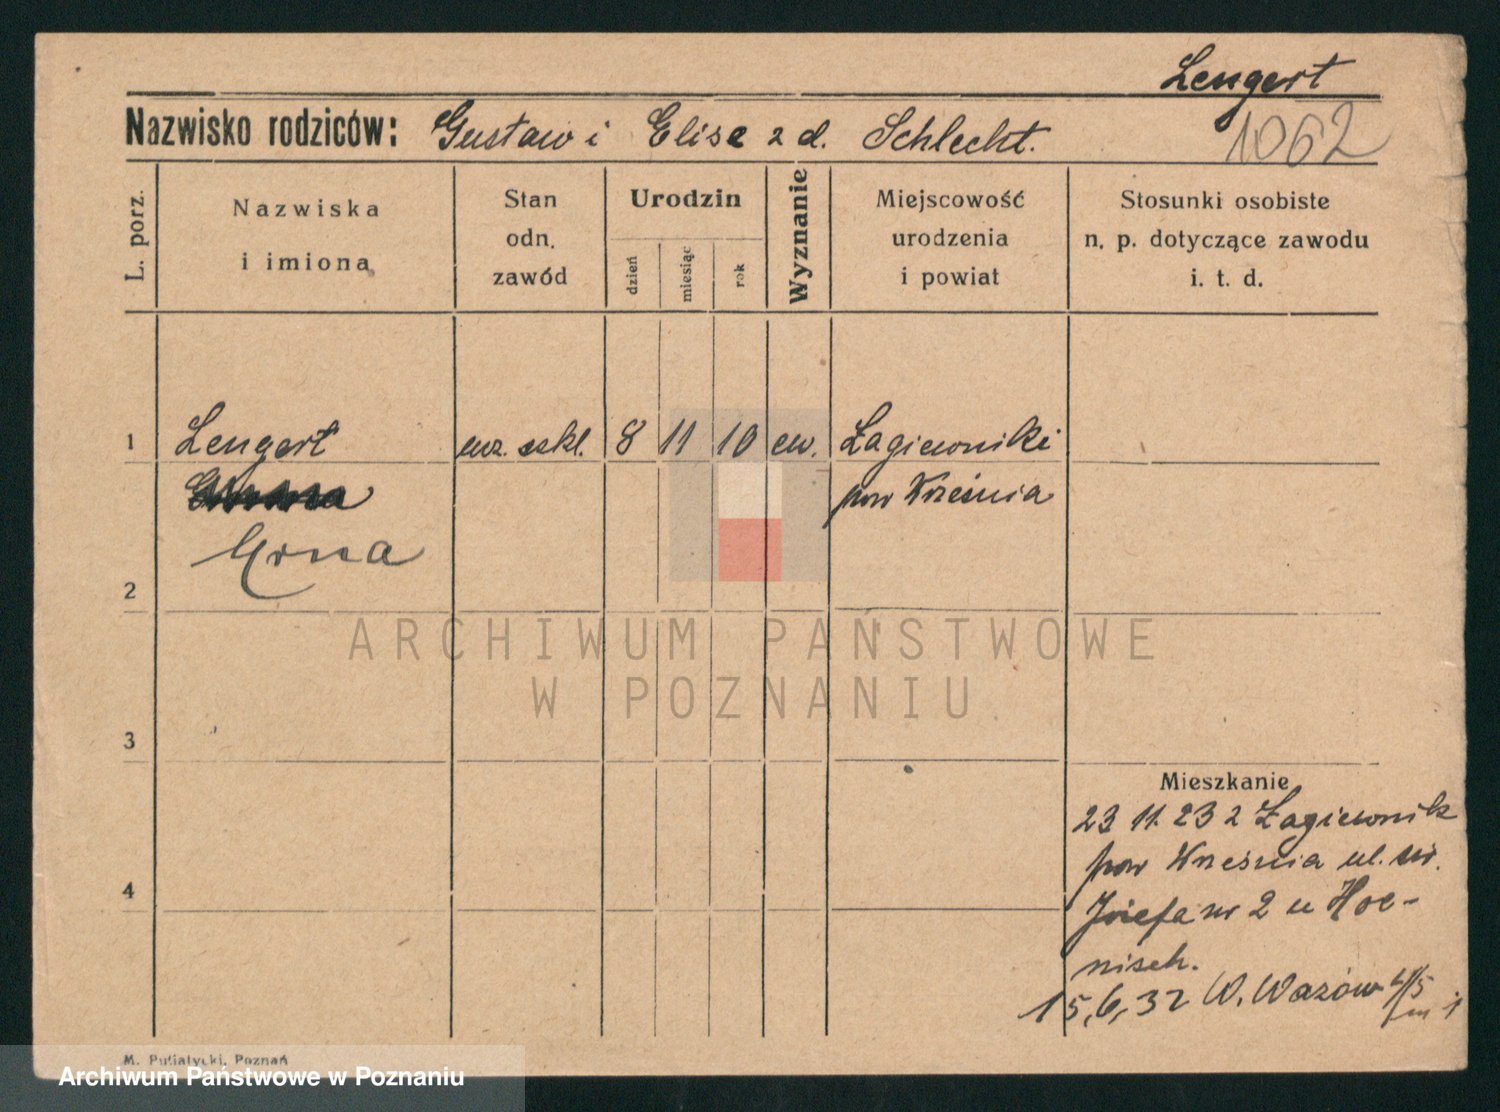 Lengert
Nazwisko rodziców: Gustaw i Elise z d. Schlecht.
1062
L. porz.
Nazwiska
i imiona
Stan
odn.
zawód
Urodzin
dzień
miesiąc
rok
Wyznanie
Miejscowość
urodzenia
i powiat
Stosunki osobiste
n. p. dotyczące zawodu
i. t. d.
1 Lengert ucz. szkl. 8 11 10 ew. Łagiewniki
pow Września
2
3
4
ARCHIWUM PAŃSTWOWE
W POZNANIU
Mieszkanie
23 11. 23 z Łagiewnik
pow Września ul. św.
Józefa nr 2 u Hoe-
nisch.
15,6,32 W. Wazów
M. Putiatycki, Poznań
Archiwum Państwowe w Poznaniu